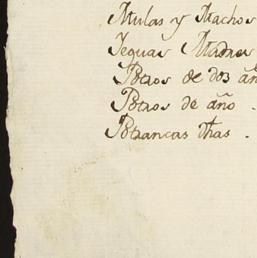 Mulas y Machos
Yeguas Madres
Potros de dos añ
Potros de año .
Potrancas dhas .